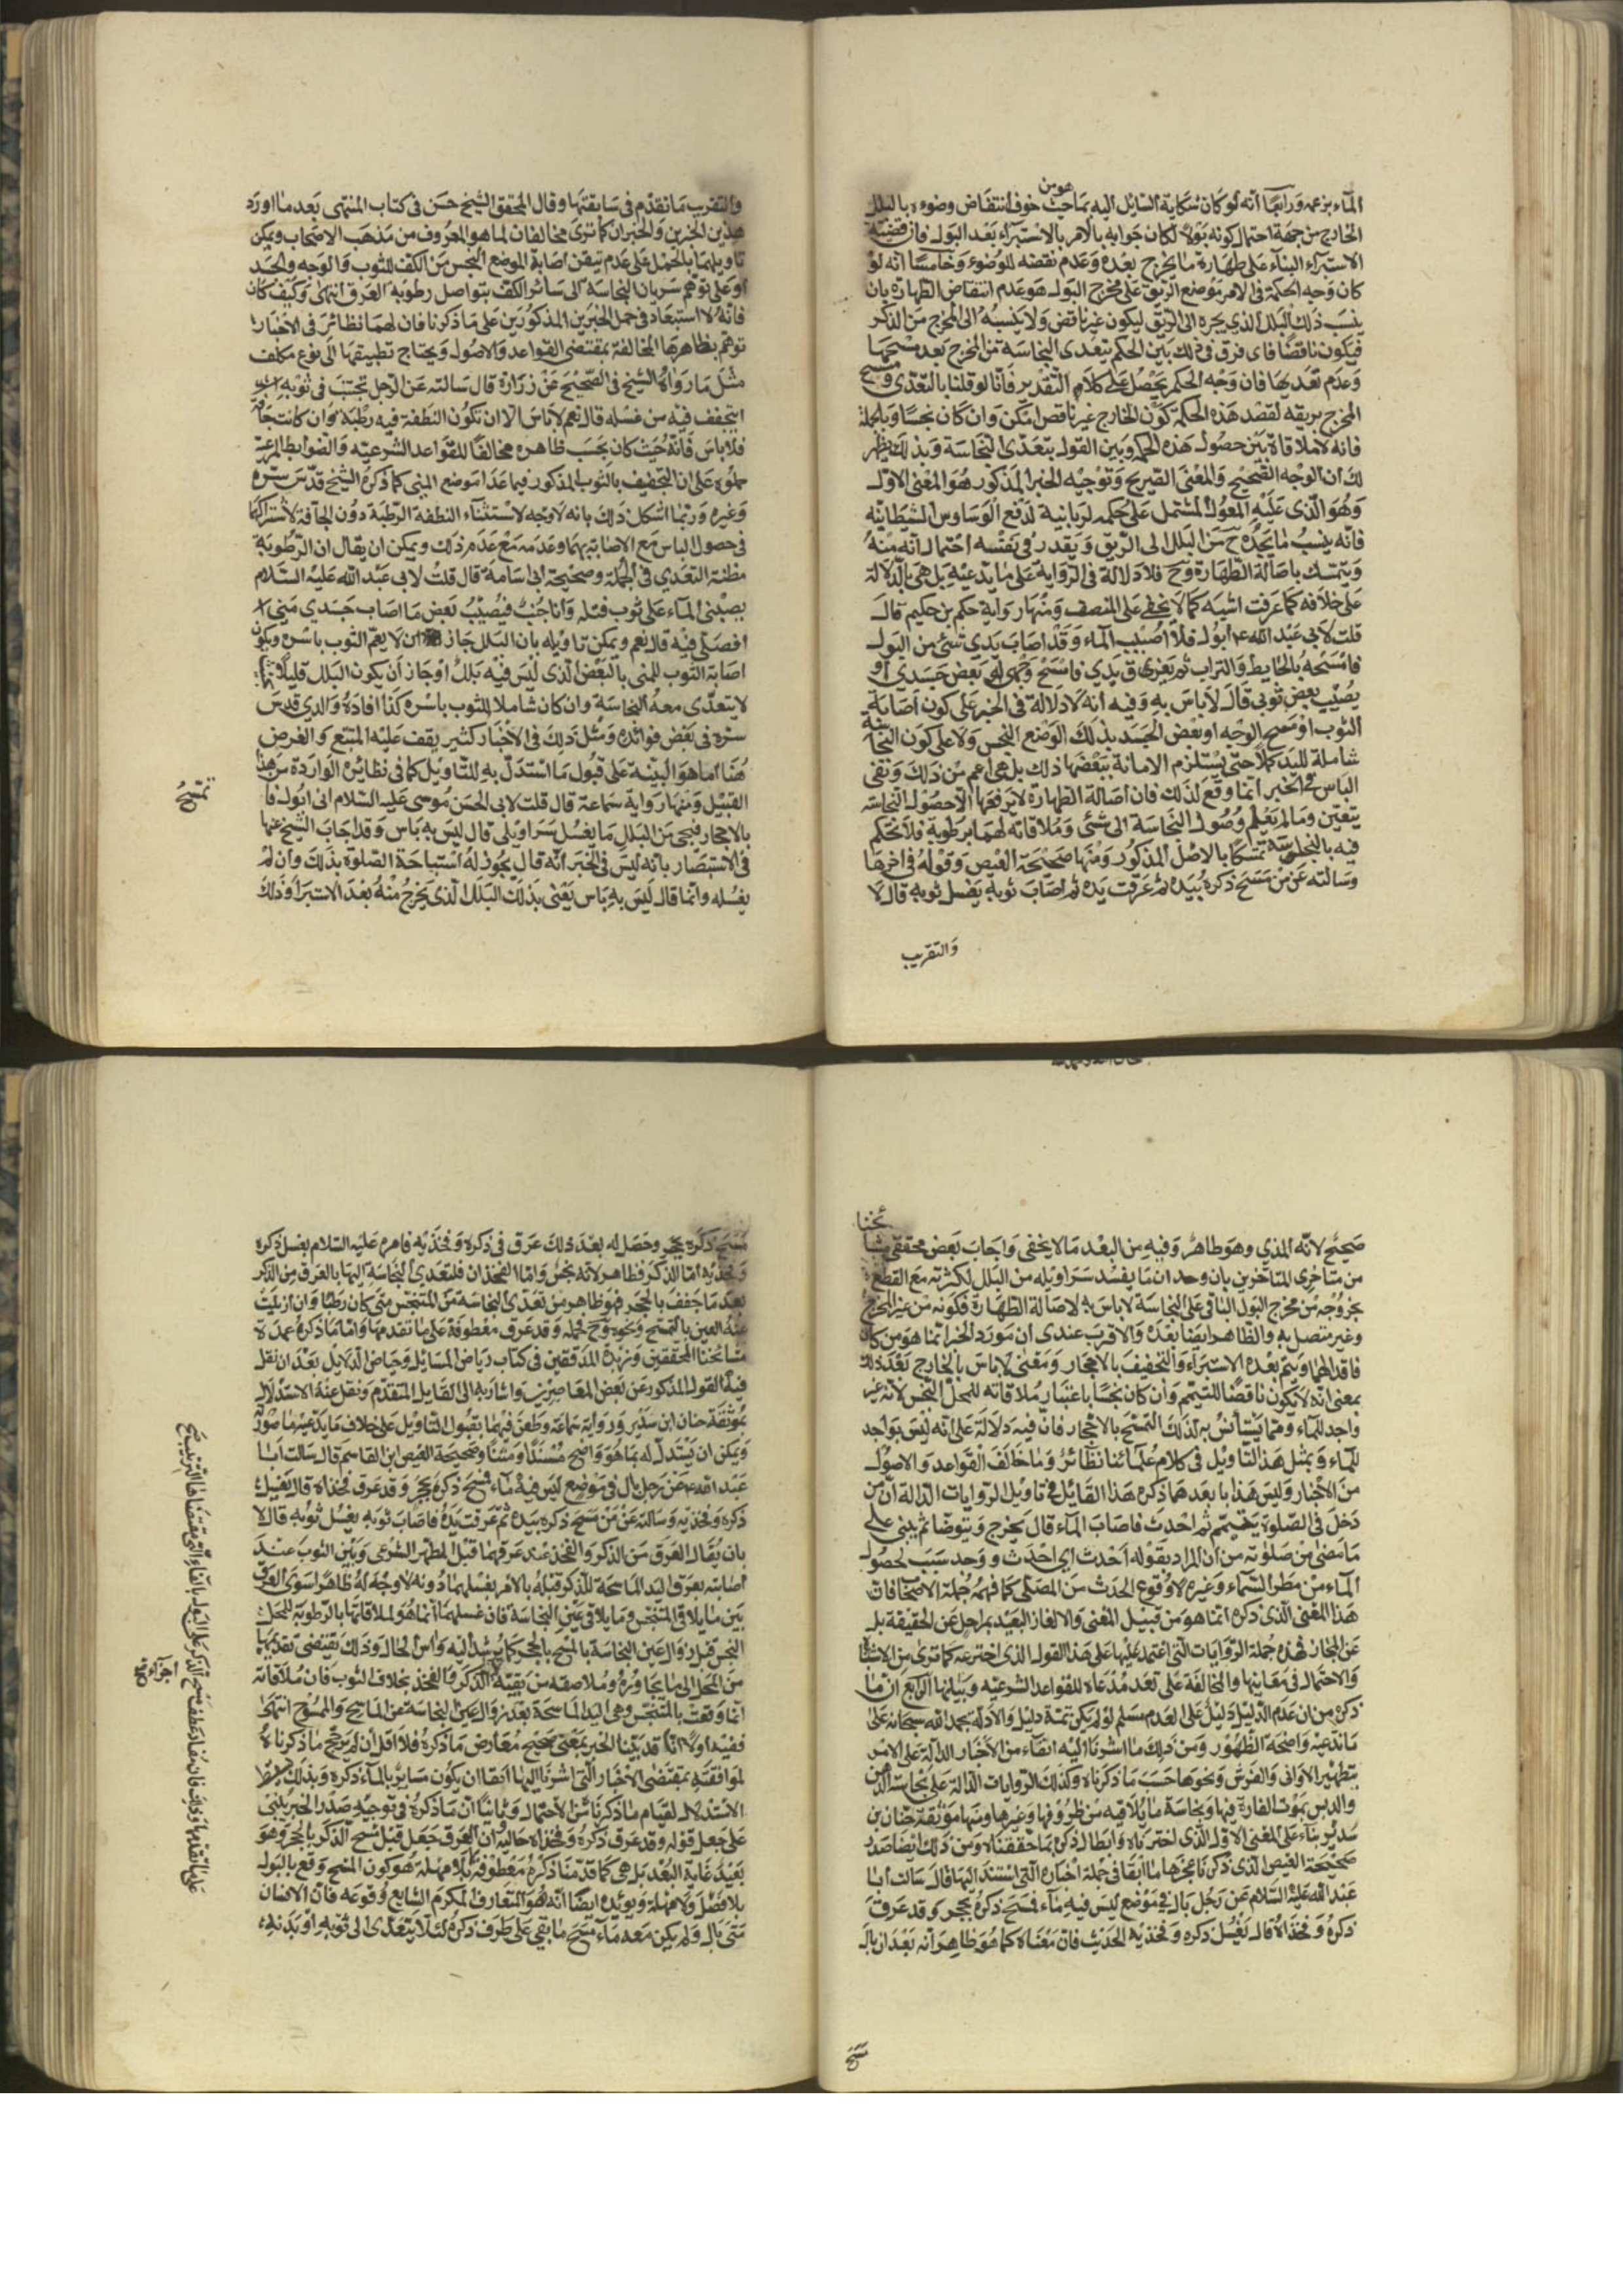 الماء بزعمه ورابعا انه لو كان شكاية السائل اليه بما حيث خوف انتقاض وضوءه بالبلل
هو من
الخارج من جهة احتمال كونه بولا لكان جوابه بالامر بالاستبراء بعد البول فان قضية
الاستبراء البناء على طهارة ما يخرج بعده وعدم نقضه للوضوء وخامسا انه لو
كان وجه الحكمة فى الامر بوضع الريق على مخرج البول هو عدم انتقاض الطهارة بان
ينسب ذلك البلل الذي يجره الى الريق ليكون غير ناقض ولا ينسبه الى المخرج من الذكر
فيكون ناقضا فاى فرق فى ذلك بين الحكم بتعدى النجاسة من المخرج بعد مسحها
وعدم تعديها فان وجه الحكم يحصل على كلام التقدير فانا لو قلنا بالتعدى ومسح
المخرج بريقه لقصد هذه الحكمة كون الخارج غير ناقص امكن وان كان نجسا وبالجملة
فانه لا ملاقاة بين حصول هذه الحكم وبين القول بتعدى النجاسة وبذلك يظهر
لك ان الوجه الصحيح والمعنى الصريح وتوجيه الخبر المذكور هو المعنى الاول
وهو الذى عليه المعول المشتمل على حكمه لربانية لدفع الوساوس الشيطانيه
فانه ينسب ما يجده ح من البلل الى الريق ويقدر فى نفسه احتمال انه منه
ويتمسك باصالة الطهارة وح فلا دلالة فى الرواية على ما يدعيه بل هى بالدلالة
على خلافه كما عرفت اشبه كما لا يخفى على المنصف ومنها رواية حكم بن حكيم قال
قلت لابى عبد الله ع ابول فلا اصيب الماء وقد اصاب يدي شئ من البول
فامسحه بالحايط والتراب ثم تعرق يدي فامسح وجهى او بعض جسدى او
يصيب بعض ثوبى قال لا باس به وفيه انه لا دلالة فى الخبر على كون اصابة
الثوب او مسح الوجه او بعض الجسد بذلك الوضع النجس ولا على كون النجاسة
شاملة لليد كملا حتى يستلزم الاصابة ببعضها ذلك بل هى اعم من ذلك ونفى
الباس فى الخبر انما وقع لذلك فان اصالة الطهارة لا يرفعها الا حصول النجاسة
بيقين وما لم يعلم وصول النجاسة الى شئى وملاقاته لهما برطوبة فلا يحكم
فيه بالنجاسة تمسكا بالاصل المذكور ومنها صحيحة العيص وقوله فى اخرها
وسالته عن من مسح ذكره بيده ثم عرقت يده ثم اصاب ثوبه يغسل ثوبه قال لا
والتقريب
والتقريب ما تقدم فى سابقتها وقال المحقق الشيخ حسن فى كتاب المنتهى بعد ما اورد
هذين الخبرين والخبران كما ترى مخالفان لما هو المعروف من مذهب الاصحاب ويمكن
تاويلهما بالحمل على عدم تيقن اصابة الموضع النجس من الكف للثوب والوجه والجسد
او على توهم سريان النجاسة الى سائر الكف بتواصل رطوبة العرق انتهى وكيف كان
فانه لا استبعاد فى حمل الخبرين المذكورين على ما ذكرنا فان لهما نظائر فى الاخبار
توهم بظاهرها المخالفة بمقتضى القواعد والاصول ويحتاج تطبيقها الى نوع مكلف
مثل ما رواه الشيخ فى الصحيح عن زرارة قال سالته عن الرجل تجنب فى ثوبه
ايتجفف فيه من غسله قال نعم لا باس الا ان تكون النطفة فيه رطبة فان كانت جافة
فلا باس فانه حيث كان بحسب ظاهره مخالفا للقواعد الشرعيه والضوابط المرعية
حملوه على ان التجفيف بالثوب المذكور فيما عدا موضع المنى كما ذكره الشيخ قدس سره
وغيره وربما اشكل ذلك بانه لا وجه لاستثناء النطفة الرطبة دون الجافة لاشتراكهما
فى حصول الباس مع الاصابة بهما وعدمه مع عدم ذلك ويمكن ان يقال ان الرطوبة
مظنة التعدي فى الجملة وصحيحة ابى اسامة قال قلت لابى عبد الله عليه السلام
يصيبنى الماء على ثوب فتله وانا جنب فيصيب بعض ما اصاب جسدي منى
افصلى فيه قال نعم ويمكن تاويله بان البلل جاز ان لا يعم الثوب باسره ويكون
اصابة الثوب للمنى بالبعض الذى ليس فيه بلل او جاز ان يكون البلل قليلا
لا يتعدى معه النجاسة وان كان شاملا للثوب باسره كذا افاده والدي قدس
سره فى بعض فوائده ومثل ذلك فى الاخبار كثير يقف عليه المتتبع والغرض
هنا اما هو البينة على قبول ما استدل به للتاويل كما فى نظائره الواردة من هذا
القبيل ومنها رواية سماعة قال قلت لابى الحسن موسى عليه السلام انى ابول فا
بالاحجار فيجى من البلل ما يفسد سراويلى قال ليس به باس وقد اجاب الشيخ عنها
فى الاستبصار بانه ليس فى الخبر انه قال يجوز له استباحة الصلوة بذلك وان لم
يغسله وانما قال ليس به باس يعنى بذلك البلل الذى يخرج منه بعد الاستبراء وذلك
صحيح لانه المذي وهو طاهر وفيه من البعد ما لا يخفى واجاب بعض محققى مشا
ئخنا
من متاخرى المتاخرين بان وحد ان ما يفسد سراويله من البلل لكثرته مع القطع
بخروجه من مخرج البول الباقى على النجاسة لا باس به لاصالة الطهارة فكونه من غير المخرج
وغير متصل به والظاهر ايضا بعده والاقرب عندى ان مورد الخبر انما هو من كان
فاقد الماء ويتم بعده الاستبراء والتخفيف بالاحجار ومعنى لا باس بالخارج بعد ذلك
بمعنى انه لا يكون ناقضا للتيمم وان كان نجسا باعتبار ملاقاته للمحل النجس لانه غير
واجد للماء ومما يستانس به لذلك التمسح بالاحجار فان فيه دلالة على انه ليس بواجد
للماء وبمثل هذا التاويل فى كلام علمائنا نظائر وما خالف القواعد والاصول
من الاخبار وليس هذا بابعد مما ذكره هذا القائل فى تاويل الروايات الدالة ان من
دخل فى الصلوة بتيمم ثم احدث فاصاب الماء قال يخرج ويتوضا ثم يبنى على
ما مضى من صلوته من ان المراد بقوله احدث اى احدث ووجد سبب لحصول
الماء من مطر السماء وغيره لا وقوع الحدث من المصلى كما فهمه جملة الاصحاب فان
هذا المعنى الذى ذكره انما هو من قبيل المعنى والالغاز البعيد بمراحل عن الحقيقة بل
عن المجاز فهذه جملة الروايات التى اعتمد عليها على هذا القول الذى اخترعه كما ترى من الاشتباه
والاحتمال فى معانيها والمخالفة على تعد مدعاه للقواعد الشرعيه ومبانيها الرابع ان ما
ذكره من ان عدم الدليل دليل على العدم مسلم لو لم يكن ثمة دليل والادلة بحمد الله سبحانه على
ما ندعيه واضحة الظهور ومن ذلك ما اشرنا اليه انفاء من الاخبار الدالة على الامر
بتطهير الاوانى والفرش ونحوها حسب ما ذكرناه وكذلك الروايات الدالة على نجاسة الدهن
والدبس بموت الفارة فيها ونجاسة ما يلاقيه من ظروفها وغيرها ومنها موثقة حنان بن
سدير بناء على المعنى الاول الذى اخترناه وابطال ذكره بما حققناه ومن ذلك ايضا صدر
صحيحة العيص الذى ذكرنا عجزها انفا فى جملة اخباره التى استند اليها قال سالت ابا
عبد الله عليه السلام عن رجل بال في موضع ليس فيه ماء فمسح ذكره بحجر وقد عرق
ذكره وفخذاه قال يغسل ذكره وفخذيه الحديث فان معناه كما هو ظاهر انه بعد ان بال
مسح
مسح ذكره بحجر وحصل له بعد ذلك عرق فى ذكره وفخذيه فامره عليه السلام بغسل ذكره
وفخذيه اما الذكر فظاهر لانه نجس واما الفخذان فلتعدى النجاسة اليها بالعرق من الذكر
بعد ما جفف بالحجر فهو ظاهر من تعدى النجاسة من المتنجس متى كان رطبا وان ازيلت
عنه العين بالتمسح ونحوه وح فجملة وقد عرف معطوفة على ما تقدمها واما ما ذكره عمدة
مشائخنا المحققين وزبدة المدققين فى كتاب رياض المسايل وحياض الدلايل بعد ان نقل
فيه القول المذكور عن بعض المعاصرين واشار به الى القايل المتقدم ونقل عنه الاستدلال
بموثقة حنان ابن سدير ورواية سماعة وطعن فيهما بقبول التاويل على خلاف ما يدعيه ما صورته
ويمكن ان يستدل له بما هو واضح مسندا ومتنا وصحيحة العيص ابن القاسم قال سالت ابا
عبد الله ع عن رجل بال فى موضع ليس فيه ماء فمسح ذكره بحجر وقد عرق فخذاه قال يغسل
ذكره وفخذيه وسالته عن من مسح ذكره بيده ثم عرقت يده فاصاب ثوبه يغسل ثوبه قال لا
بان يقال الفرق من الذكر والفخذ عند عرقهما قبل المطهر الشرعى وبين الثوب عند
اصابته بعرق اليد الماسحة للذكر قبله بالامر بغسلهما دونه لا وجه له ظاهرا سوى الفرق
بين ما يلاقى المتنجس وما يلاقى عين النجاسة فان غسلهما انما هو لملاقاتهما بالرطوبة للمحل
النجس قبل زوال عين النجاسة بالمسح بالحجر كما يرشد اليه واس الحال وذلك يقتضى تعديها
من المحل الى ما يجاوره وملاصقه من بقية الذكر والفخذ بخلاف الثوب فان ملاقاته
انما وقعت بالمتنجس وهى اليد الماسحة بعد زوال عين النجاسة عن الماسح والممسوح انتهى
ففيه اولا انا قد بينا الخبر بمعنى صحيح معارض ما ذكره فلا اقل ان لم يرجح ما ذكرناه
لموافقته بمقتضى الاخبار التى اشرنا اليها انفا ان يكون مساويا لما ذكره وبذلك
الاستدلال لقيام ما ذكرنا من الاحتمال وثانيا ان ما ذكره فى توجيه صدر الخبر يبنى
على جعل قوله وقد عرق ذكره وفخذاه حالية ان العرق جعل قبل مسح الذكر بالحجر وهو
بعيد غاية البعد بل هى كما قدمنا ذكره معطوفة بلا مهلة هو كون المسح وقع بالبول
بلا فصل ولا مهلة ويويده ايضا انه هو المتعارف المكرم الشايع وقوعه فان الانسان
متى بال ولم يكن معه ماء مسح ما بقى على طرف ذكره لئلا يتعدى الى ثوبه او بدنه